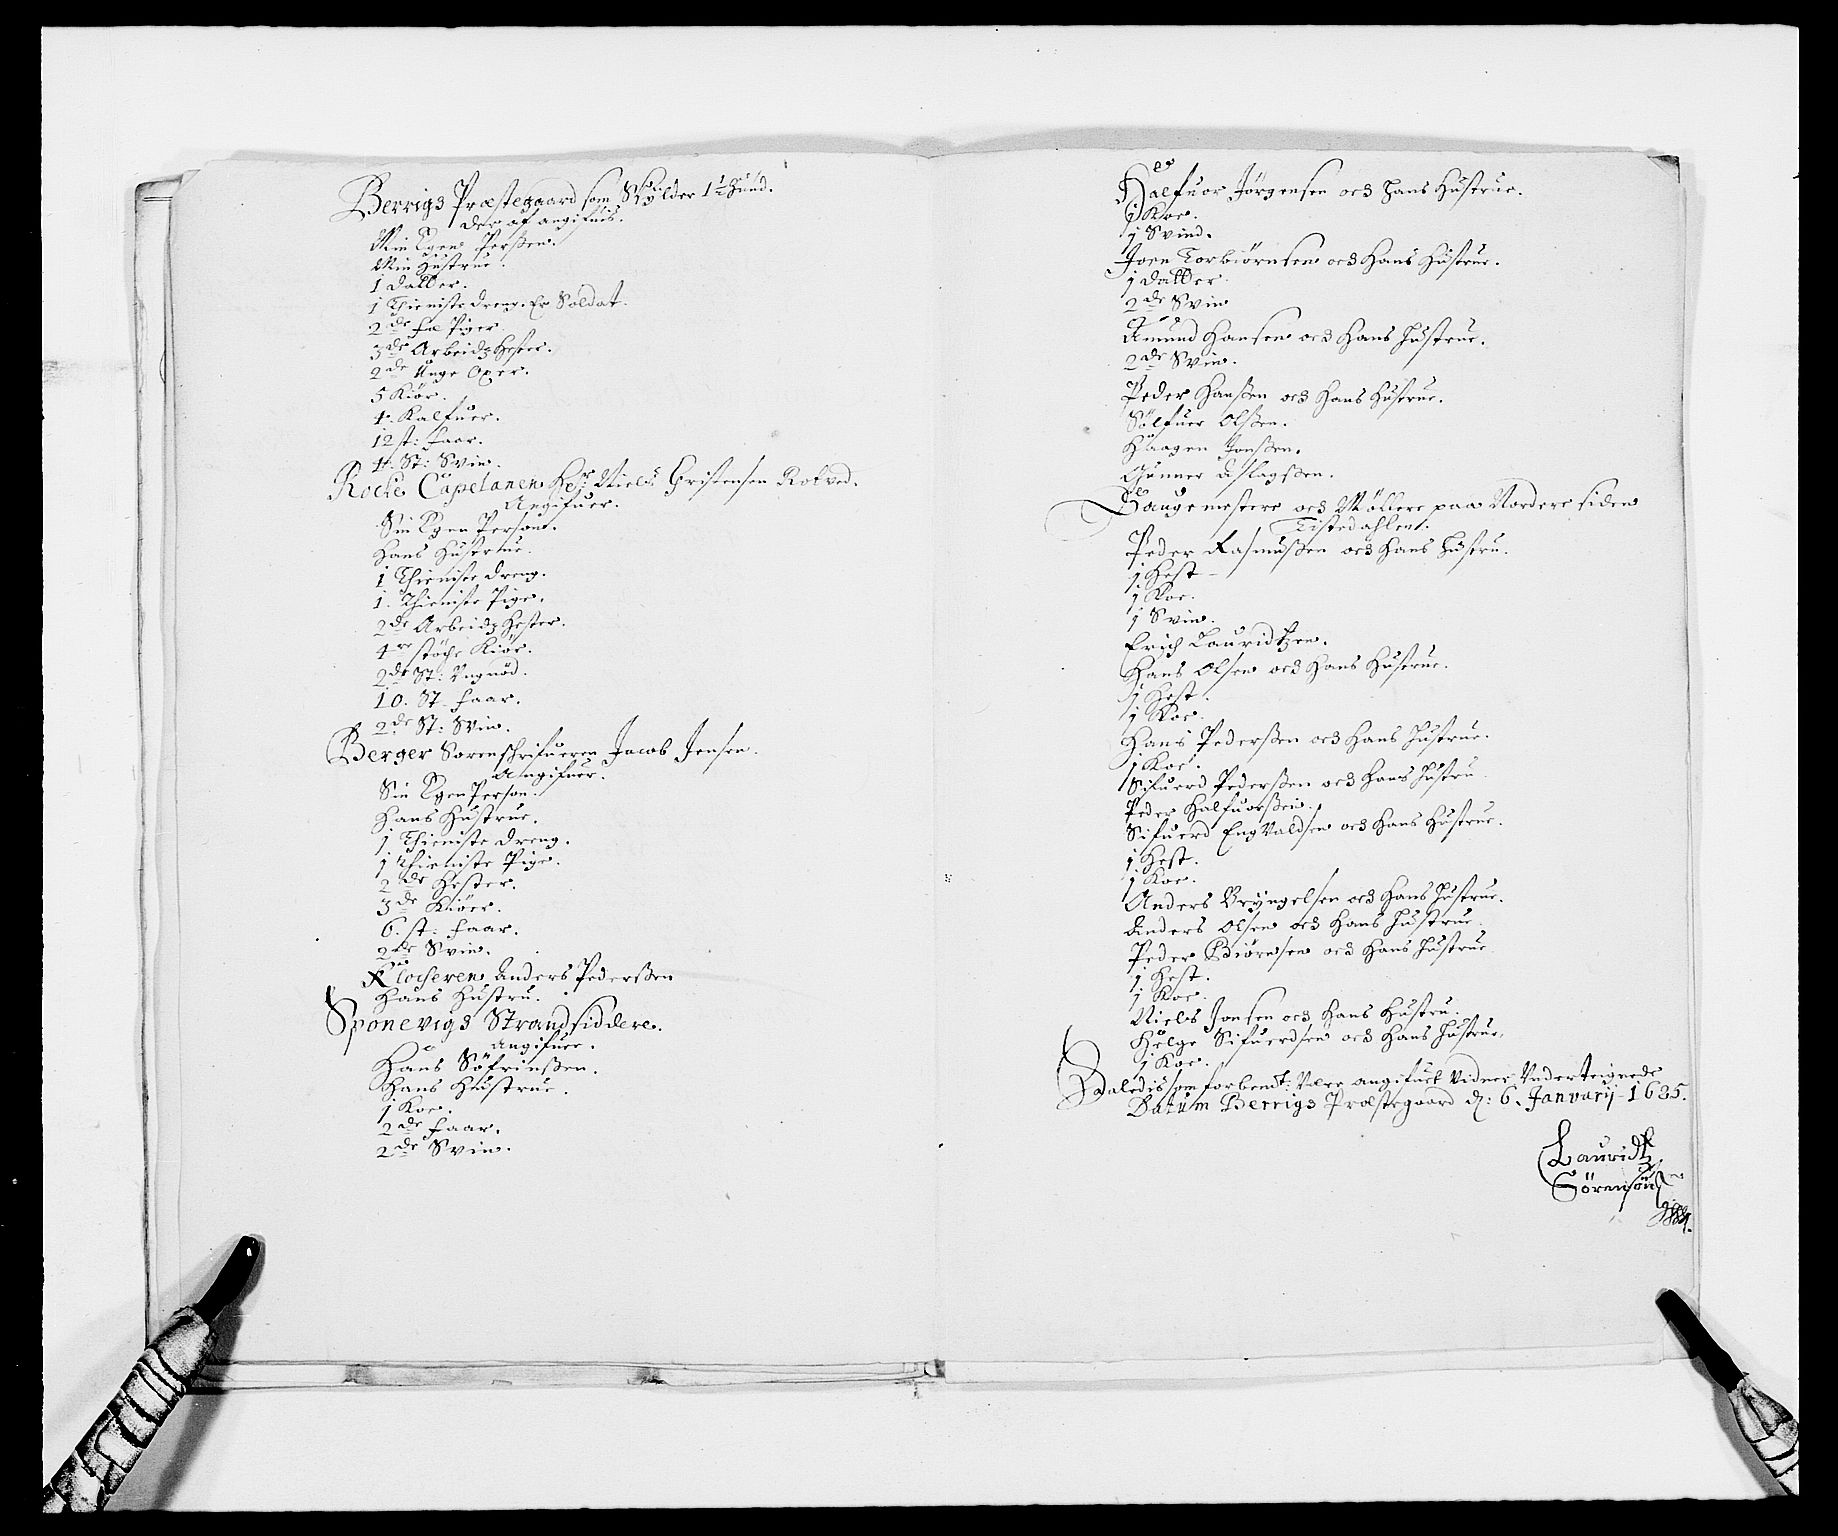 Berrigs Præstegaard som Skylder 1½ Huud.
der af angifuis.
Min Egen Person.
Min Hustrue.
1 Datter.
1 Thieniste dreng. Er Soldat.
2de fæ Piger
3de Arbeidz Hester.
2de Unge Oxer.
5 Kiör.
4. Kalfuer.
12 st: Faar.
4. St: Svin.
Rocke Capelanen Her Niels Christensen Rokved.
Angifuer.
Sin Egen Person.
Hans Hustrue.
1 Thieniste dreng.
1. Thieniste Pige.
2de Arbeidz Hester.
4re stöche Kiör.
2de St: Ungnöd.
10. St. faar.
2de St: Svin.
Berger Sorenschrifueren Jacob Jensen.
Angifuer.
Sin Egen Person.
Hans Hustrue.
1 Thieniste dreng.
1 Thieniste Pige.
2de Hester.
3de Kiöer.
6. st: faar.
2de Svin.
Klocheren Anders Pederssen
Hans Hustru.
Sponevigs Strandsiddere.
angifuer.
Hans Söfrinssen.
Hans Hustrue.
1 Koe.
2de faar.
2de Svin.
Halfuor Jörgensen och hans Hustrue.
1 Koe.
1 Svind.
Joen Torbiörnsen och Hans Hustrue.
1 datter.
2de Svin
Amund Hansen och Hans Hustrue.
2de Svin.
Peder Hanssen och Hans Hustrue.
Sölfuer Olssen.
Haagen Jonssen.
Gunner Aslagssen.
Saugemestere och Möllere paa Nordere siden
Tistedahlen.
Peder Rasmussen och Hans Hustru.
1 Hest
1 Koe.
1 Svin.
Erich Lauridtzen.
Hans Olsen och Hans Hustrue.
1 Hest.
1 Koe.
Hans Pederssen och Hans Hustrue.
1 Koe.
Sifuerd Pederssen och Hans Hustru
Peder Halfuorssen.
Sifuerd Engvaldsen och Hans Hustrue.
1 Hest.
1 Koe.
Anders Bryngelsen och Hans Hustrue.
Anders Olsen och Hans Hustrue
Peder Biörnsen och Hans Hustrue
1 Hest.
1 Koe.
Niels Jonsen och Hans Hustru.
Helge Sifuerdsen och Hans Hustrue,
1 Koe.
Saledis som forbemt: Vere angifuet Vidner Underteignede
Datum Berrigs Præstegaard d: 6. Januarij 1685.
Lauridtz
Sörensön